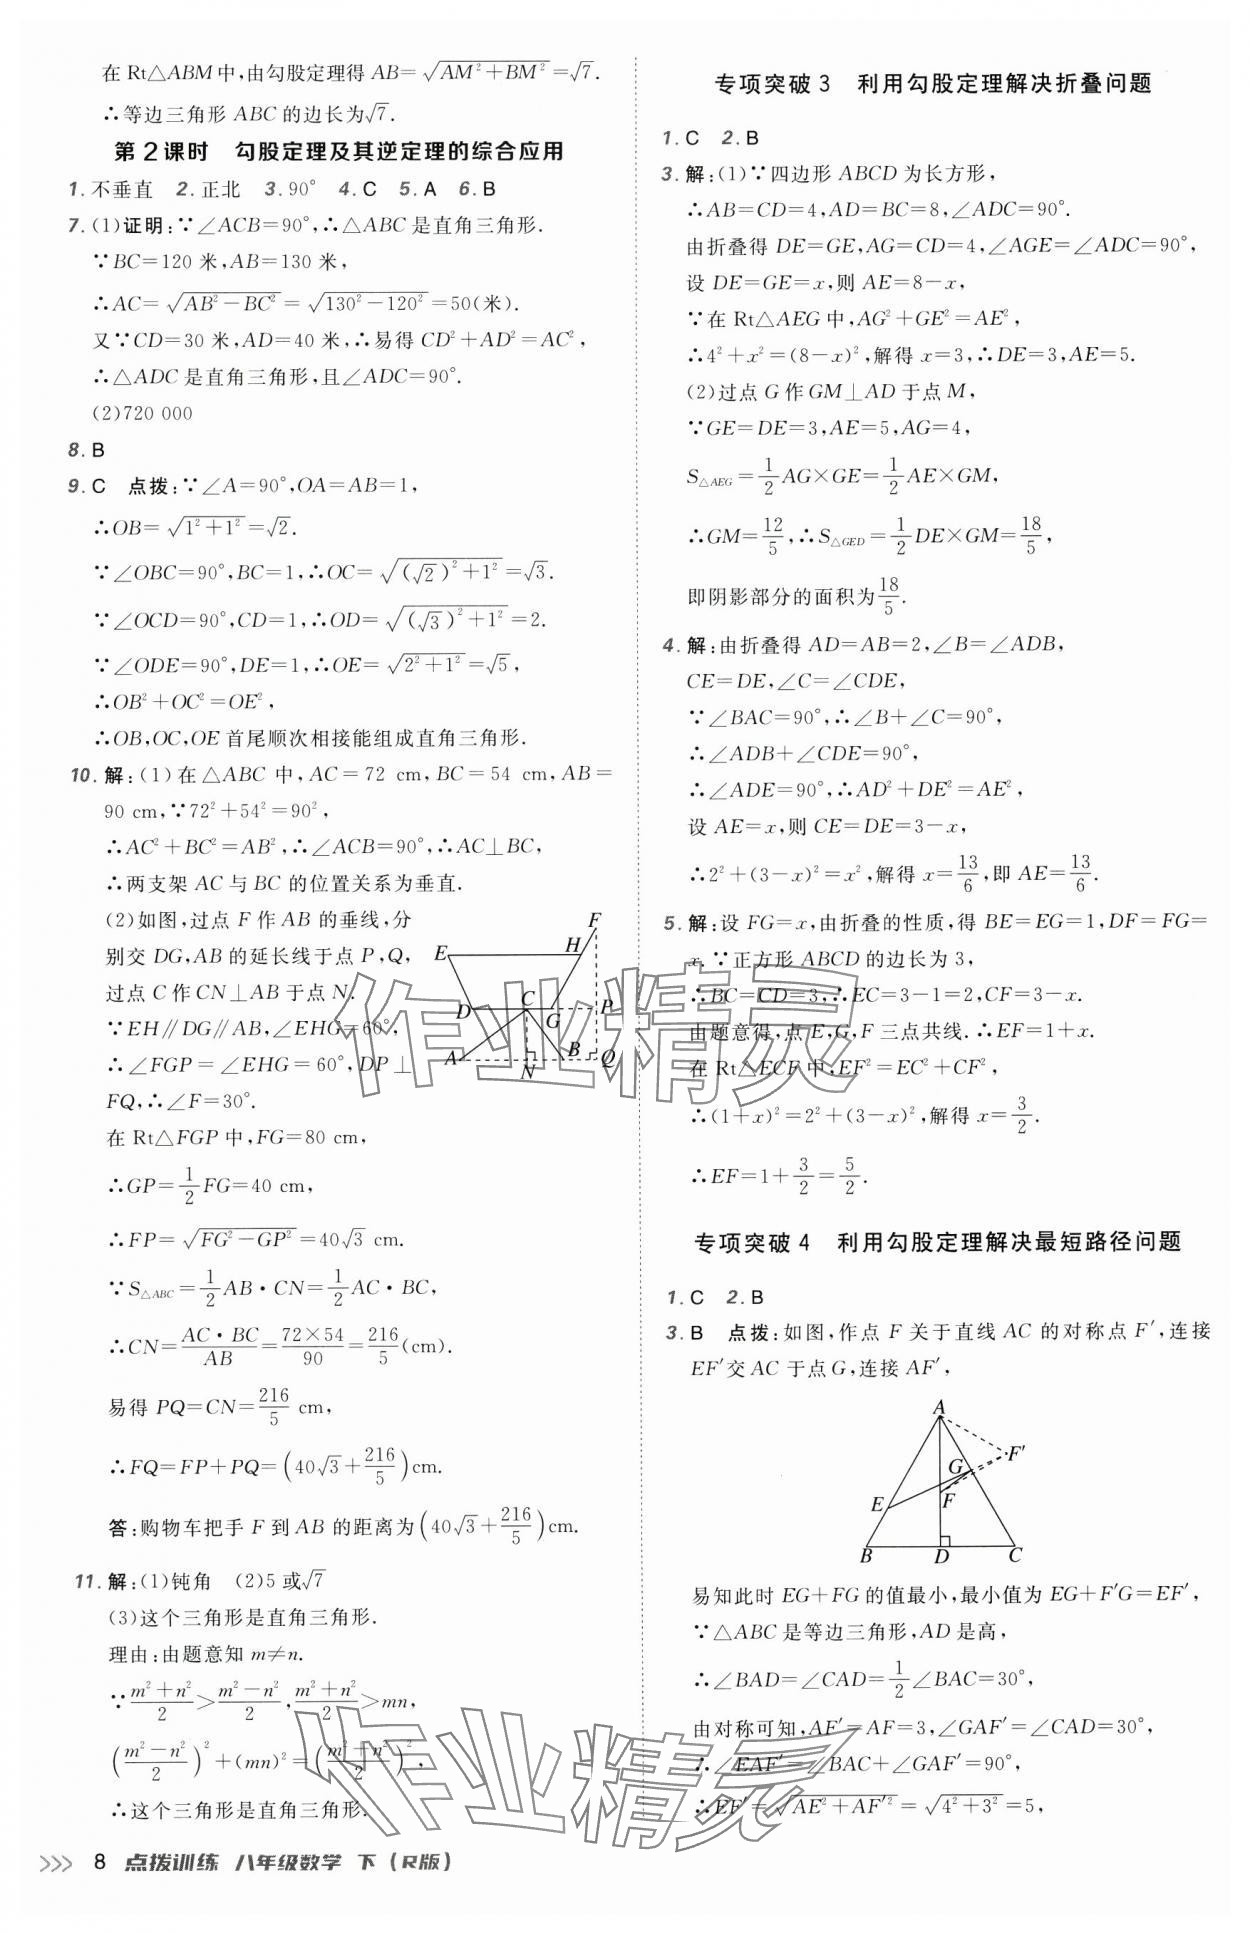 在 Rt△ABM 中,由勾股定理得 AB=√(AM²+BM²)=√7.
∴等边三角形 ABC 的边长为√7.
第2课时 勾股定理及其逆定理的综合应用
1. 不垂直 2. 正北 3. 90° 4. C 5. A 6. B
7. (1)证明:∵∠ACB=90°,∴△ABC 是直角三角形.
∵BC=120 米,AB=130 米,
∴AC=√(AB²-BC²)=√(130²-120²)=50(米).
又∵CD=30 米,AD=40 米,∴易得 CD²+AD²=AC²,
∴△ADC 是直角三角形,且∠ADC=90°.
(2)720 000
8. B
9. C 点拨:∵∠A=90°,OA=AB=1,
∴OB=√(1²+1²)=√2.
∵∠OBC=90°,BC=1,∴OC=√((√2)²+1²)=√3.
∵∠OCD=90°,CD=1,∴OD=√((√3)²+1²)=2.
∵∠ODE=90°,DE=1,∴OE=√(2²+1²)=√5,
∴OB²+OC²=OE²,
∴OB,OC,OE 首尾顺次相接能组成直角三角形.
10. 解:(1)在△ABC 中,AC=72 cm,BC=54 cm,AB=
90 cm,∵72²+54²=90²,
∴AC²+BC²=AB²,∴∠ACB=90°,∴AC⊥BC,
∴两支架 AC 与 BC 的位置关系为垂直.
(2)如图,过点 F 作 AB 的垂线,分
别交 DG,AB 的延长线于点 P,Q,
过点 C 作 CN⊥AB 于点 N.
∵EH∥DG∥AB,∠EHG=60°,
∴∠FGP=∠EHG=60°,DP⊥
FQ,∴∠F=30°.
F
E H
D C G P
A N B Q
在 Rt△FGP 中,FG=80 cm,
∴GP=1/2 FG=40 cm,
∴FP=√(FG²-GP²)=40√3 cm.
∵S△ABC=1/2 AB·CN=1/2 AC·BC,
∴CN=AC·BC/AB=72×54/90=216/5(cm).
易得 PQ=CN=216/5 cm,
∴FQ=FP+PQ=(40√3+216/5)cm.
答:购物车把手 F 到 AB 的距离为(40√3+216/5)cm.
11. 解:(1)钝角 (2)5 或√7
(3)这个三角形是直角三角形.
理由:由题意知 m≠n.
∵(m²+n²)/2>(m²-n²)/2,(m²+n²)/2>mn,
((m²-n²)/2)²+(mn)²=((m²+n²)/2)²,
∴这个三角形是直角三角形.
专项突破3 利用勾股定理解决折叠问题
1. C 2. B
3. 解:(1)∵四边形 ABCD 为长方形,
∴AB=CD=4,AD=BC=8,∠ADC=90°.
由折叠得 DE=GE,AG=CD=4,∠AGE=∠ADC=90°,
设 DE=GE=x,则 AE=8-x,
∵在 Rt△AEG 中,AG²+GE²=AE²,
∴4²+x²=(8-x)²,解得 x=3,∴DE=3,AE=5.
(2)过点 G 作 GM⊥AD 于点 M,
∵GE=DE=3,AE=5,AG=4,
S△AEG=1/2 AG×GE=1/2 AE×GM,
∴GM=12/5,∴S△GED=1/2 DE×GM=18/5,
即阴影部分的面积为18/5.
4. 解:由折叠得 AD=AB=2,∠B=∠ADB,
CE=DE,∠C=∠CDE,
∵∠BAC=90°,∴∠B+∠C=90°,
∴∠ADB+∠CDE=90°,
∴∠ADE=90°,∴AD²+DE²=AE²,
设 AE=x,则 CE=DE=3-x,
∴2²+(3-x)²=x²,解得 x=13/6,即 AE=13/6.
5. 解:设 FG=x,由折叠的性质,得 BE=EG=1,DF=FG=
x.∵正方形 ABCD 的边长为 3,
∴BC=CD=3,∴EC=3-1=2,CF=3-x.
由题意得,点 E,G,F 三点共线.∴EF=1+x.
在 Rt△ECF 中,EF²=EC²+CF²,
∴(1+x)²=2²+(3-x)²,解得 x=3/2.
∴EF=1+3/2=5/2.
专项突破4 利用勾股定理解决最短路径问题
1. C 2. B
3. B 点拨:如图,作点 F 关于直线 AC 的对称点 F′,连接
EF′交 AC 于点G,连接 AF′,
A
F′
G
E F
B D C
易知此时 EG+FG 的值最小,最小值为 EG+F′G=EF′,
∵△ABC 是等边三角形,AD 是高,
∴∠BAD=∠CAD=1/2∠BAC=30°,
由对称可知,AF′=AF=3,∠GAF′=∠CAD=30°,
∴∠EAF′=∠BAC+∠GAF′=90°,
∴EF′=√(AE²+AF′²)=√(4²+3²)=5,
8 点拨训练 八年级数学 下(R版)
作业精灵
作业精灵